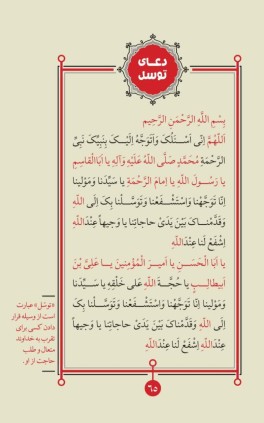 دعـای
توسل
بِسْمِ اللَّهِ الرَّحْمَنِ الرَّحِيمِ
اَللّهُمَّ اِنّى اَسْئَلُكَ وَاَتَوَجَّهُ اِلَيْكَ بِنَبِيِّكَ نَبِىِّ
الرَّحْمَةِ مُحَمَّدٍ صَلَّى اللّهُ عَلَيْهِ وَآلِهِ يا اَبَاالْقاسِمِ
يا رَسُولَ اللّهِ يا اِمامَ الرَّحْمَةِ يا سَيِّدَنا وَمَوْلينا
اِنّا تَوَجَّهْنا وَاسْتَشْفَعْنا وَتَوَسَّلْنا بِكَ اِلَى اللّهِ
وَقَدَّمْناكَ بَيْنَ يَدَىْ حاجاتِنا يا وَجيهاً عِنْدَ اللّهِ
اِشْفَعْ لَنا عِنْدَ اللّهِ
يا اَبَا الْحَسَنِ يا اَميرَ الْمُؤْمِنينَ يا عَلِىَّ بْنَ
اَبيطالِبٍ يا حُجَّةَ اللّهِ عَلى خَلْقِهِ يا سَيِّدَنا
وَمَوْلينا اِنّا تَوَجَّهْنا وَاسْتَشْفَعْنا وَتَوَسَّلْنا بِكَ
اِلَى اللّهِ وَقَدَّمْناكَ بَيْنَ يَدَىْ حاجاتِنا يا وَجيهاً
عِنْدَ اللّهِ اِشْفَعْ لَنا عِنْدَ اللّهِ
«توسّل» عبارت
است از وسیله قرار
دادن کسی برای
تقرب به خداوند
متعال و طلب
حاجت از او.
٦٥